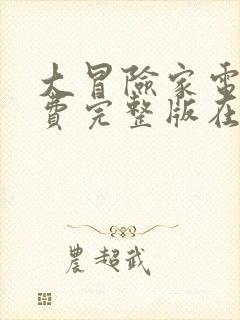 大冒險家電
費完整版在
農超武